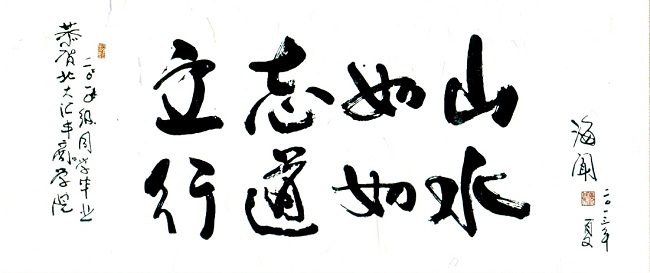 恭贺北大汇丰商学院
级同学毕业
立志如山
行道如水
海闻
二〇一三年夏